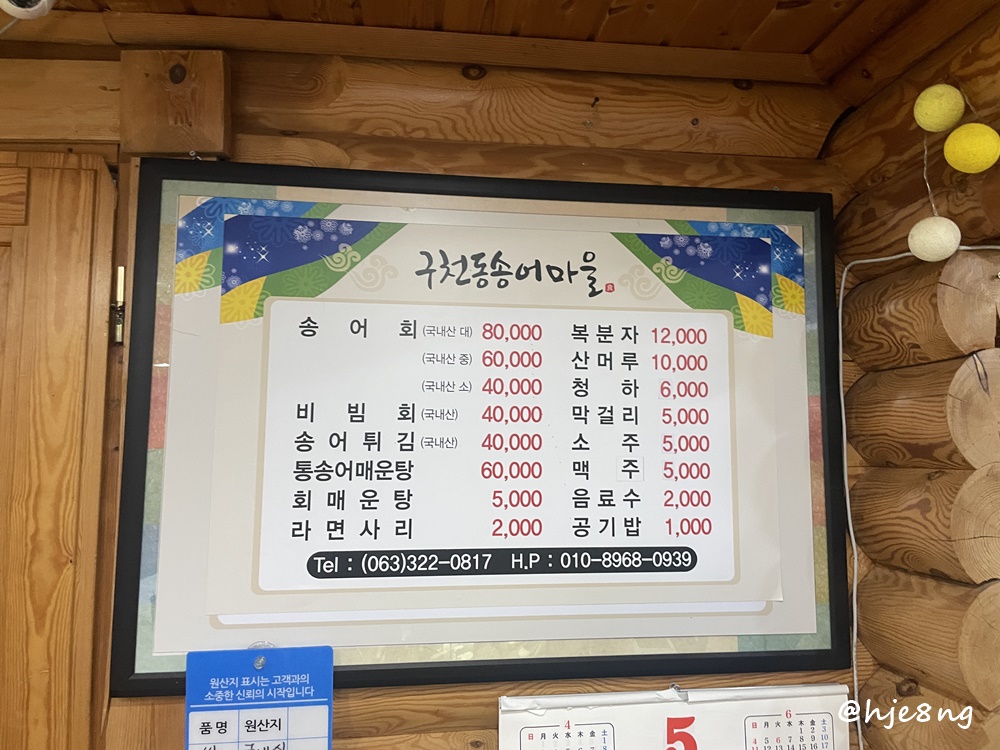 구천동송어마을
송어회 (국내산 대) 80,000
(국내산 중) 60,000
(국내산 소) 40,000
비빔회 (국내산) 40,000
송어튀김 (국내산) 40,000
통송어매운탕 60,000
회매운탕 5,000
라면사리 2,000
복분자 12,000
산머루 10,000
청하 6,000
막걸리 5,000
소주 5,000
맥주 5,000
음료수 2,000
공기밥 1,000
Tel : (063)322-0817 H.P : 010-8968-0939
원산지 표시는 고객과의
소중한 신뢰의 시작입니다
품명 원산지
4
5
6
日 月 火 水 木 金 土
@hje8ng